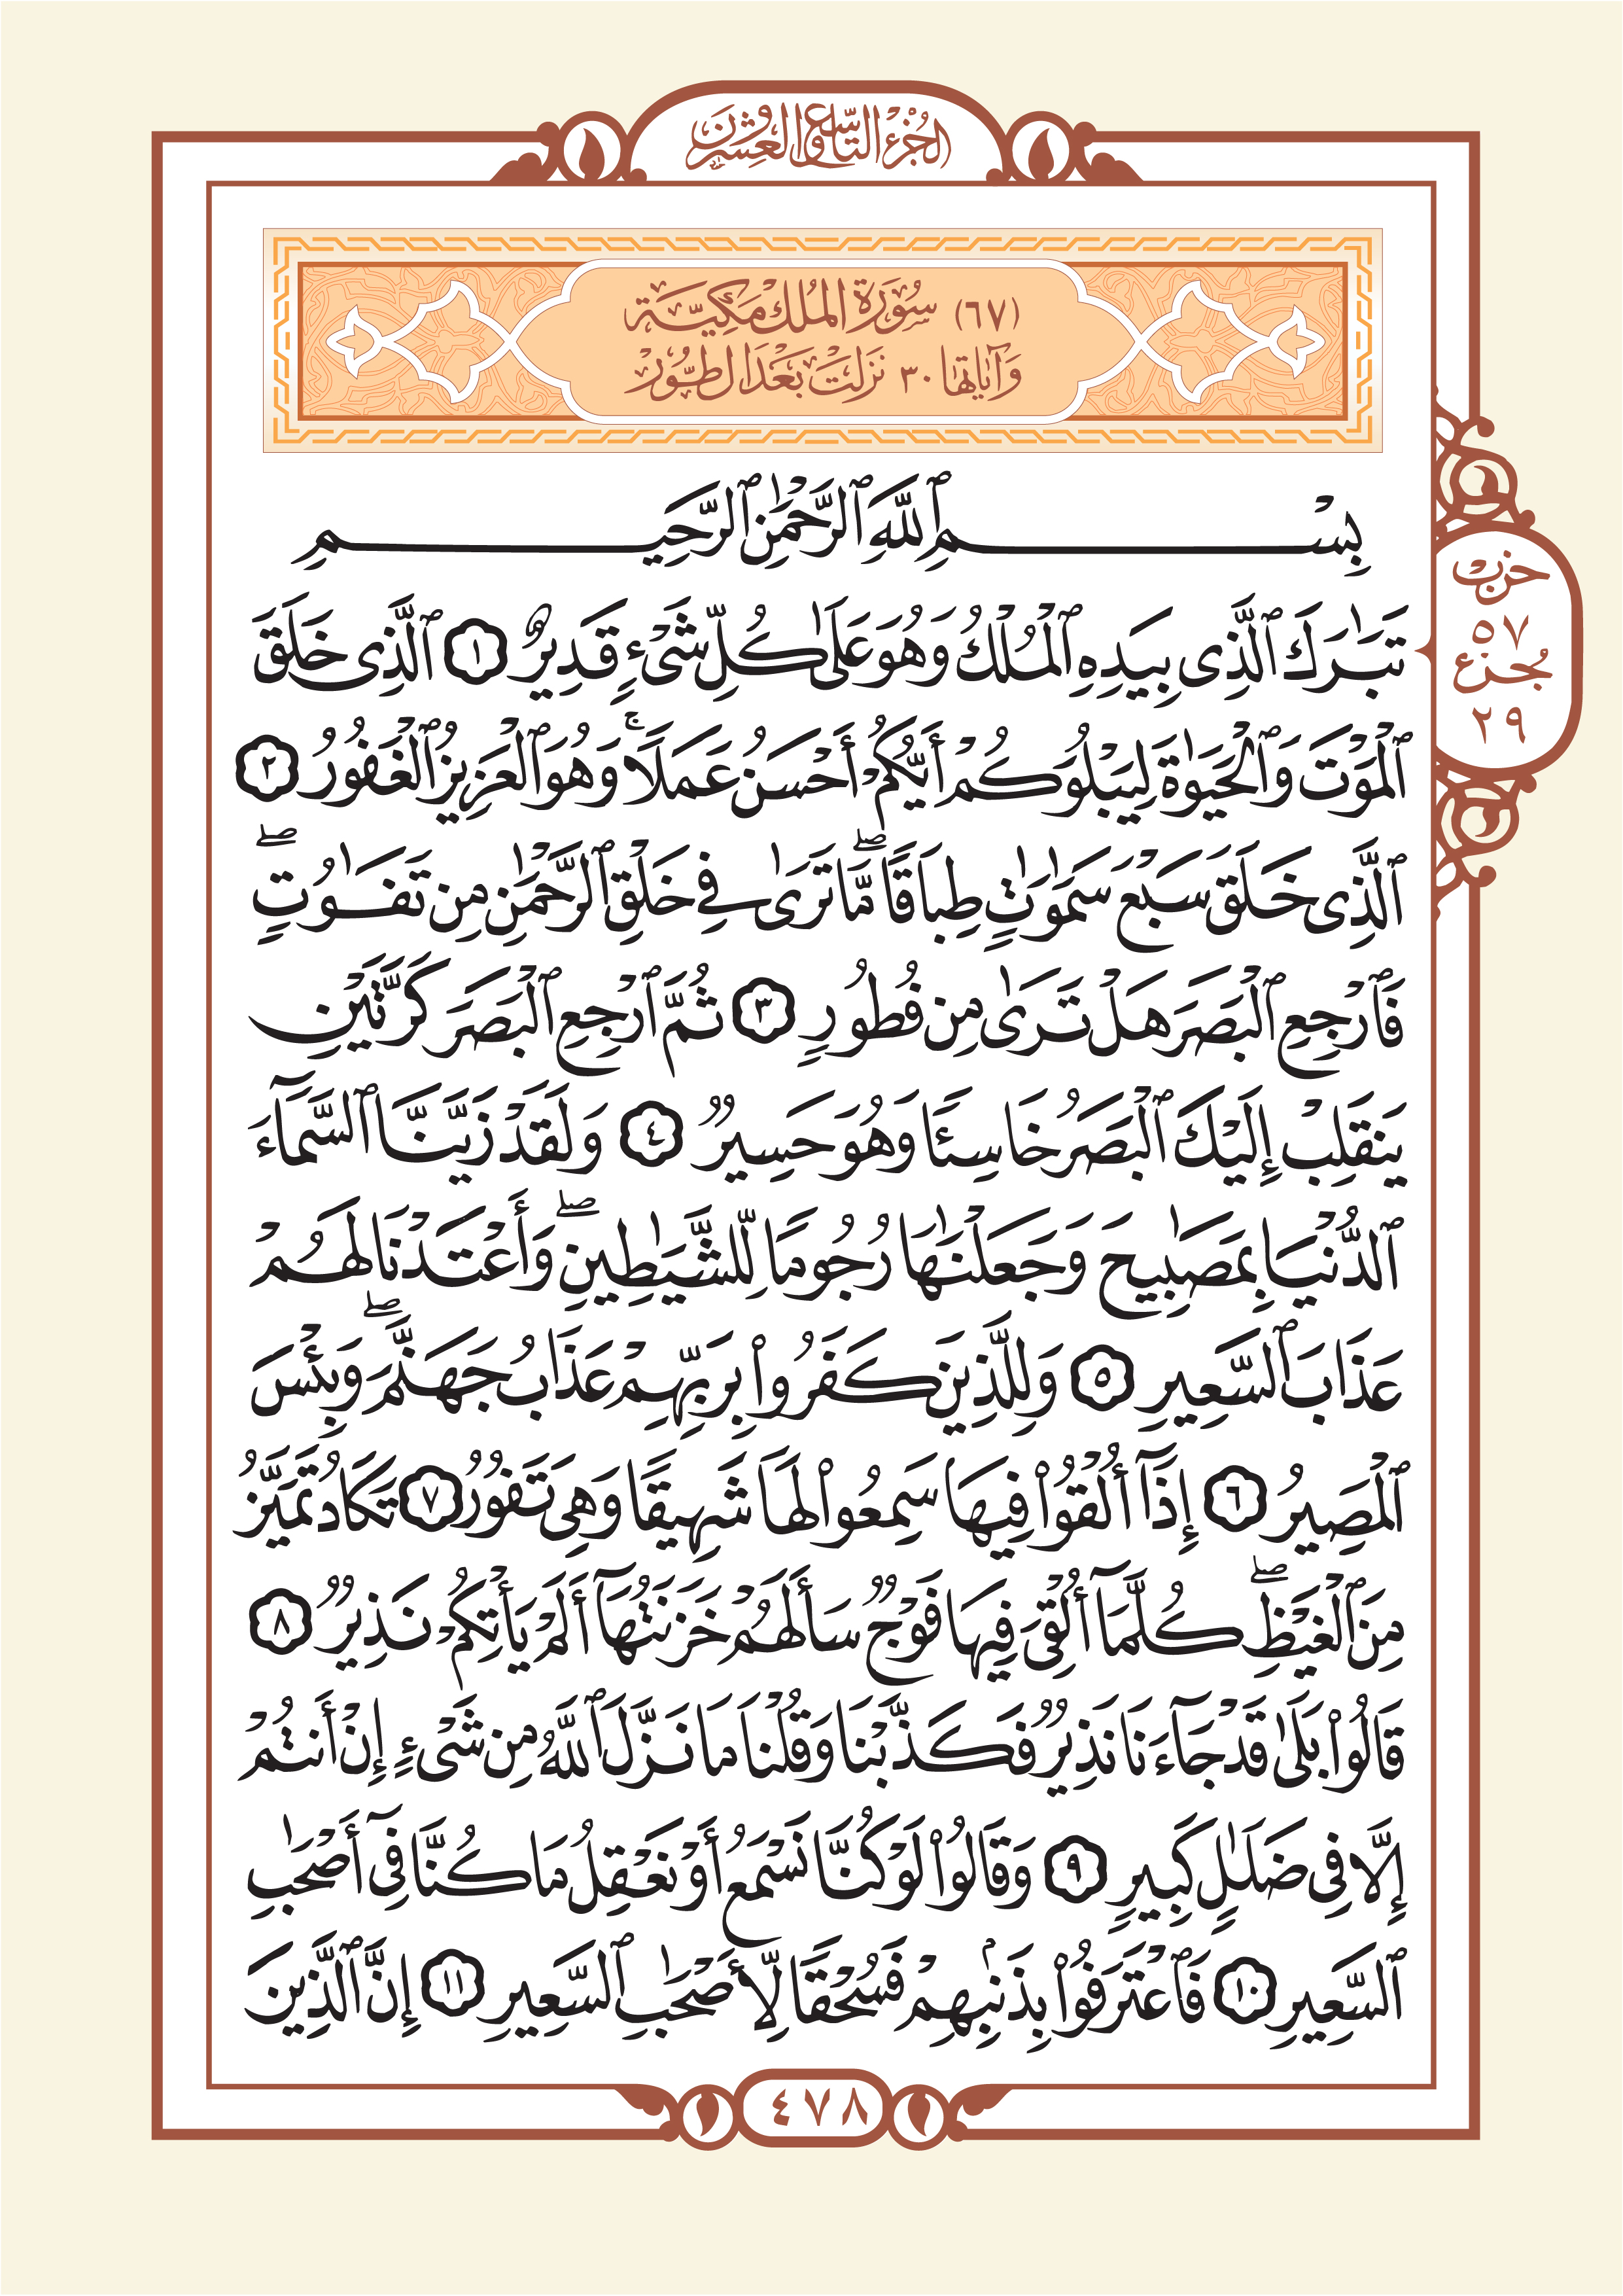 الجُزْءُ التَّاسِعُ وَالْعِشْرُونَ
(٦٧) سُورَةُ المُلْكِ مَكِّيَّة
وَآيَاتُهَا ٣٠ نَزَلَتْ بَعْدَ الطُّورْ
بِسْمِ ٱللَّهِ ٱلرَّحْمَٰنِ ٱلرَّحِيمِ
تَبَٰرَكَ ٱلَّذِى بِيَدِهِ ٱلْمُلْكُ وَهُوَ عَلَىٰ كُلِّ شَىْءٍ قَدِيرٌ ١ ٱلَّذِى خَلَقَ
ٱلْمَوْتَ وَٱلْحَيَوٰةَ لِيَبْلُوَكُمْ أَيُّكُمْ أَحْسَنُ عَمَلًا ۚ وَهُوَ ٱلْعَزِيزُ ٱلْغَفُورُ ٢
ٱلَّذِى خَلَقَ سَبْعَ سَمَٰوَٰتٍ طِبَاقًا ۖ مَّا تَرَىٰ فِى خَلْقِ ٱلرَّحْمَٰنِ مِن تَفَٰوُتٍ ۖ
فَٱرْجِعِ ٱلْبَصَرَ هَلْ تَرَىٰ مِن فُطُورٍ ٣ ثُمَّ ٱرْجِعِ ٱلْبَصَرَ كَرَّتَيْنِ
يَنقَلِبْ إِلَيْكَ ٱلْبَصَرُ خَاسِئًا وَهُوَ حَسِيرٌ ٤ وَلَقَدْ زَيَّنَّا ٱلسَّمَآءَ
ٱلدُّنْيَا بِمَصَٰبِيحَ وَجَعَلْنَٰهَا رُجُومًا لِّلشَّيَٰطِينِ ۖ وَأَعْتَدْنَا لَهُمْ
عَذَابَ ٱلسَّعِيرِ ٥ وَلِلَّذِينَ كَفَرُوا۟ بِرَبِّهِمْ عَذَابُ جَهَنَّمَ ۖ وَبِئْسَ
ٱلْمَصِيرُ ٦ إِذَآ أُلْقُوا۟ فِيهَا سَمِعُوا۟ لَهَا شَهِيقًا وَهِىَ تَفُورُ ٧ تَكَادُ تَمَيَّزُ
مِنَ ٱلْغَيْظِ ۖ كُلَّمَآ أُلْقِىَ فِيهَا فَوْجٌ سَأَلَهُمْ خَزَنَتُهَآ أَلَمْ يَأْتِكُمْ نَذِيرٌ ٨
قَالُوا۟ بَلَىٰ قَدْ جَآءَنَا نَذِيرٌ فَكَذَّبْنَا وَقُلْنَا مَا نَزَّلَ ٱللَّهُ مِن شَىْءٍ إِنْ أَنتُمْ
إِلَّا فِى ضَلَٰلٍ كَبِيرٍ ٩ وَقَالُوا۟ لَوْ كُنَّا نَسْمَعُ أَوْ نَعْقِلُ مَا كُنَّا فِىٓ أَصْحَٰبِ
ٱلسَّعِيرِ ١٠ فَٱعْتَرَفُوا۟ بِذَنۢبِهِمْ فَسُحْقًا لِّأَصْحَٰبِ ٱلسَّعِيرِ ١١ إِنَّ ٱلَّذِينَ
حزب
٥٧
جزء
٢٩
٤٧٨